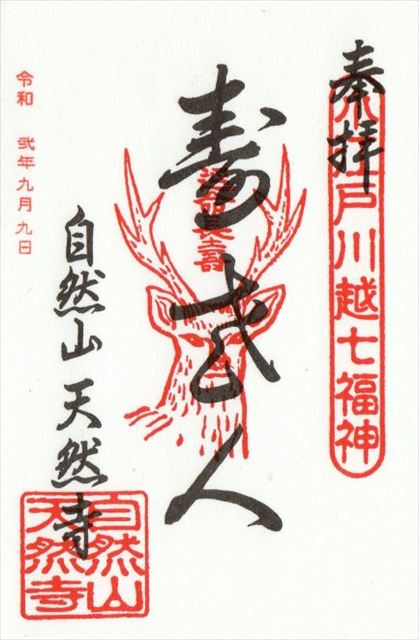 奉拝
小江戸川越七福神
寿老人
自然山天然寺
自然山
天然寺
令和 弐年九月九日